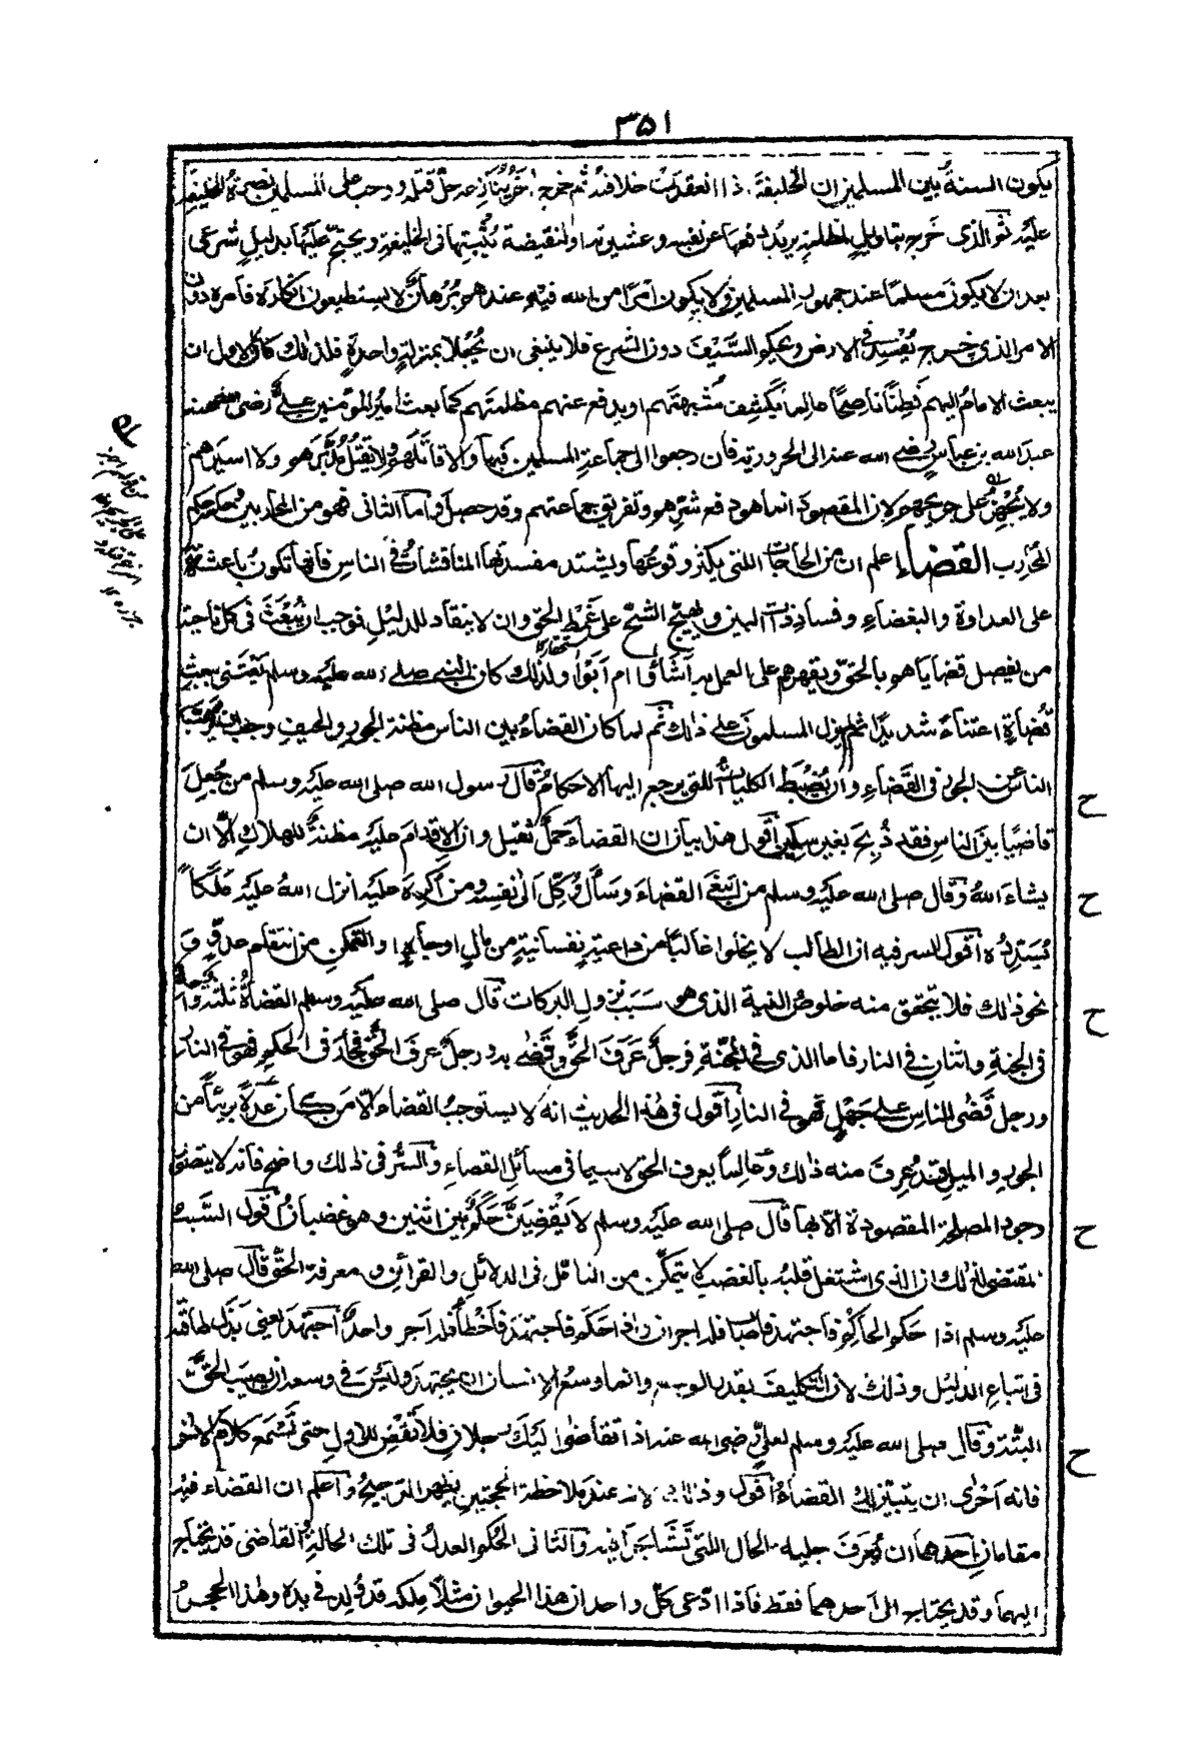 ٣٥١
يكون السنة بين المسلمين ان الخليفة اذا انعقدت خلافته ثم خرج اخر ينازعه حل قتله ووجب على المسلمين نصرة الخليفة
عليه ثم الذى خرج بتاويل لمظلمة يريد دفعها عن نفسه وعشيرته او لنقيصة يثبتها فى الخليفة ويحتج عليها بدليل شرعى
بعد ان لا يكون مسلما عند جمهور المسلمين ولا يكون امرا من الله فيه عندهم برهان لا يستطيعون انكاره فامره دون
الامر الذى خرج يفسد فى الارض ويحكم السيف دون الشرع فلا ينبغى ان يجعلا بمنزلة واحدة فلذلك كان الاول ان
يبعث الامام اليهم فطنا ناصحا عالما يكشف شبهتهم او يدفع عنهم مظلمتهم كما بعث امير المؤمنين على رضى الله عنه
عبد الله بن عباس رضى الله عنه الى الحرورية فان رجعوا الى جماعة المسلمين فبها والا قاتلهم ولا يقتل مدبرهم ولا اسيرهم
ولا يجهز على جريحهم لان المقصود انما هو دفع شرهم وتفريق جماعتهم وقد حصل واما الثانى فهو من المحاربين وحكمه حكم
المحارب القضاء اعلم ان من الحاجات اللتى يكثر وقوعها ويشتد مفسدتها المناقشات فى الناس فانها تكون باعثة
على العداوة والبغضاء وفساد ذات البين ويهيج الشح على غمط الحق وان لا ينقاد للدليل فوجب ان يبعث فى كل ناحية
من يفصل قضاياهم بالحق ويقهرهم على العمل به أشاؤا ام ابوا ولذلك كان النبى صلى الله عليه وسلم يعتنى ببعث
قضاة اعتناء شديدا ثم لم يزل المسلمون على ذلك ثم لما كان القضاء بين الناس مظنة الجور والحيف وجب ان يرهب
الناس عن الجور فى القضاء وان يضبط الكليات اللتى يرجع اليها الاحكام قال رسول الله صلى الله عليه وسلم من جعل
قاضيا بين الناس فقد ذبح بغير سكين اقول هذا بيان ان القضاء حمل ثقيل وان الاقدام عليه مظنة للهلاك الا ان
يشاء الله وقال صلى الله عليه وسلم من ابتغى القضاء وسأل وكل الى نفسه ومن اكره عليه انزل الله عليه ملكا
يسدده اقول السر فيه ان الطالب لا يخلوا غالبا من داعية نفسانية من مال او جاه او التمكن من انتقام عدو و
نحو ذلك فلا يتحقق منه خلوص النية الذى هو سبب نزول البركات قال صلى الله عليه وسلم القضاة ثلثة واحد
فى الجنة واثنان فى النار فاما الذى فى الجنة فرجل عرف الحق وقضى به ورجل عرف الحق فجار فى الحكم فهو فى النار
ورجل قضى للناس على جهل فهو فى النار اقول فى هذا الحديث انه لا يستوجب القضاء الا من كان عدلا بريئا من
الجور والميل قد عرف منه ذلك وعالما يعرف الحق لا سيما فى مسائل القضاء والسر فى ذلك واضح فانه لا يتصور
وجود المصلحة المقصودة الا بها قال صلى الله عليه وسلم لا يقضين حكم بين اثنين وهو غضبان اقول السبب
المقتضى لذلك ان الذى اشتغل قلبه بالغضب لا يتمكن من التامل فى الدلائل والقرائن و معرفة الحق قال صلى الله
عليه وسلم اذا حكم الحاكم فاجتهد فاصاب فله اجران واذا حكم فاجتهد فاخطأ فله اجر واحد اجتهد يعنى بذل طاقته
فى اتباع الدليل وذلك لان التكليف بقدر الوسع وانما وسع الانسان ان يجتهد وليس فى وسعه ان يصيب الحق
البتة وقال صلى الله عليه وسلم لعلى رضى الله عنه اذا تقاضى اليك رجلان فلا تقض للاول حتى تسمع كلام الاخر
فانه احرى ان يتبين لك القضاء اقول وذلك لانه عند ملاحظة الحجتين يظهر الترجيح واعلم ان القضاء فيه
مقامان احدهما ان يعرف جلية الحال اللتى تشاجرا فيه والثانى الحكم العدل فى تلك الحالة والقاضى قد يحتاج
اليهما وقد يحتاج الى احدهما فقط فاذا ادعى كل واحد ان هذا الحيوان مثلا ملكه قد ولد فى يده وهذا الحجر
ح
ح
ح
ح
ح